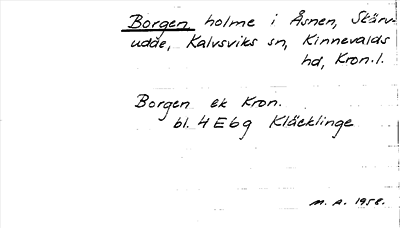 Borgen holme i Åsnen, Skärv-
udde, Kalvsviks sn, Kinnevalds
hd, Kron.l.
Borgen ek Kron.
bl. 4E6g Kläcklinge
M. A. 1958.